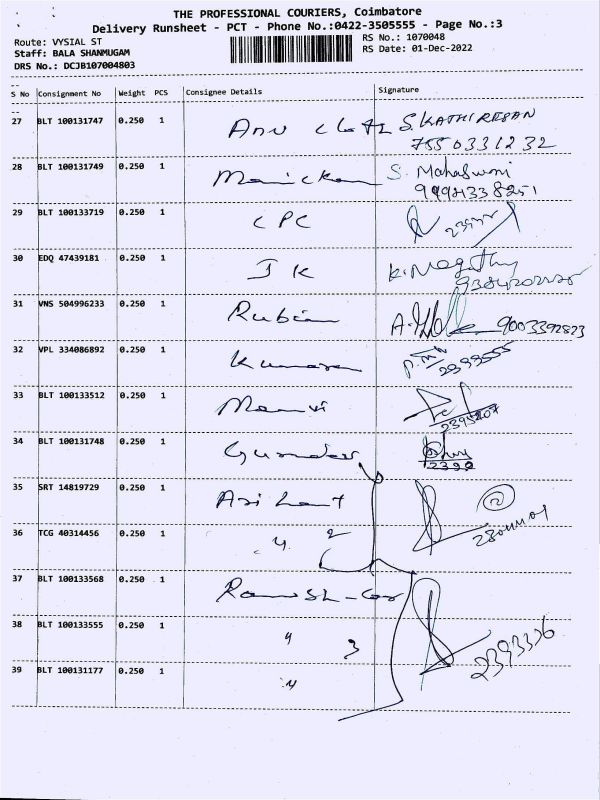 THE PROFESSIONAL COURIERS, Coimbatore
Delivery Runsheet - PCT - Phone No.:0422-3505555 - Page No.:3
Route: VYSIAL ST
RS No.: 1070048
Staff: BALA SHANMUGAM
RS Date: 01-Dec-2022
DRS No.: DCJB107004803
S No Consignment No Weight PCS Consignee Details Signature
27 BLT 100131747 0.250 1 Anu Cloth S.KATHIRESAN
7550331232
28 BLT 100131749 0.250 1 Manickam S. Mahaswari
29 BLT 100133719 0.250 1 CPC
30 EDQ 47439181 0.250 1 JK
31 VNS 504996233 0.250 1 Rubian 9003392823
32 VPL 334086892 0.250 1 Kumaran
2393555
33 BLT 100133512 0.250 1
2395207
34 BLT 100131748 0.250 1
2392
35 SRT 14819729 0.250 1 Arihant
36 TCG 40314456 0.250 1 " 2
37 BLT 100133568 0.250 1 Ramesh
38 BLT 100133555 0.250 1 " 3
2393336
39 BLT 100131177 0.250 1 "